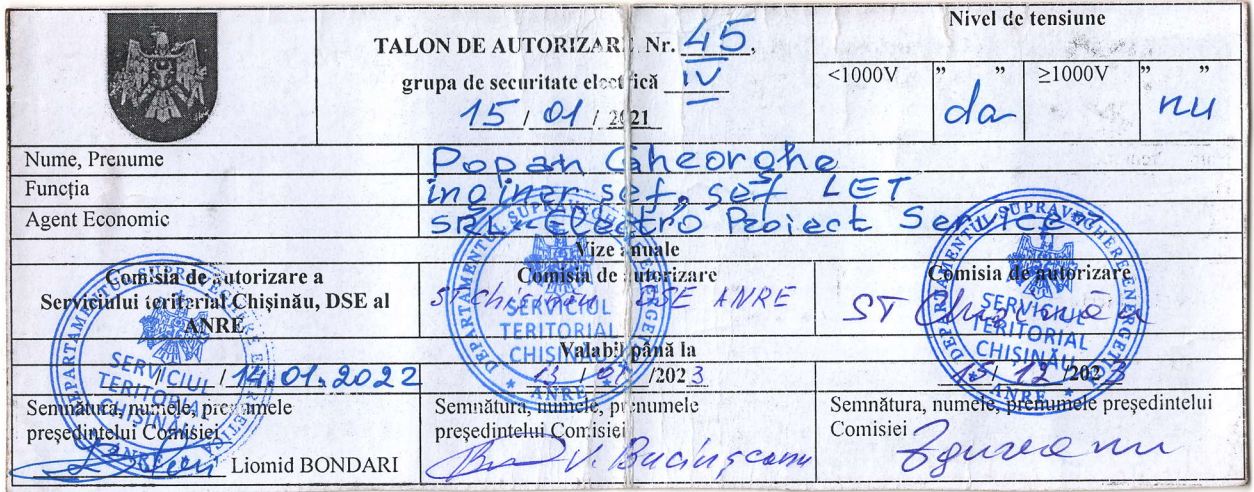 TALON DE AUTORIZARE Nr. 45,
grupa de securitate electrică IV
15 / 01 / 2021
Nivel de tensiune
<1000V " da " ≥1000V " nu "
Nume, Prenume Popan Gheorghe
Funcția inginer șef, șef LET
Agent Economic SRL "Electro Proiect Service"
Vize anuale
Comisia de autorizare a
Serviciului teritorial Chișinău, DSE al
ANRE
Comisia de autorizare
ST Chișinău DSE ANRE
Comisia de autorizare
ST Chișinău
Valabil până la
/ 14.01.2022
13 / 01 /2023
15 / 12 /2023
Semnătura, numele, prenumele
președintelui Comisiei
Liomid BONDARI
Semnătura, numele, prenumele
președintelui Comisiei
V. Bucinșcanu
Semnătura, numele, prenumele președintelui
Comisiei
DEPARTAMENTUL SUPRAVEGHERE ENERGETICĂ
SERVICIUL
TERITORIAL
CHIȘINĂU
ANRE
DEPARTAMENTUL SUPRAVEGHERE ENERGETICĂ
SERVICIUL
TERITORIAL
CHIȘINĂU
ANRE
DEPARTAMENTUL SUPRAVEGHERE ENERGETICĂ
SERVICIUL
TERITORIAL
CHIȘINĂU
ANRE